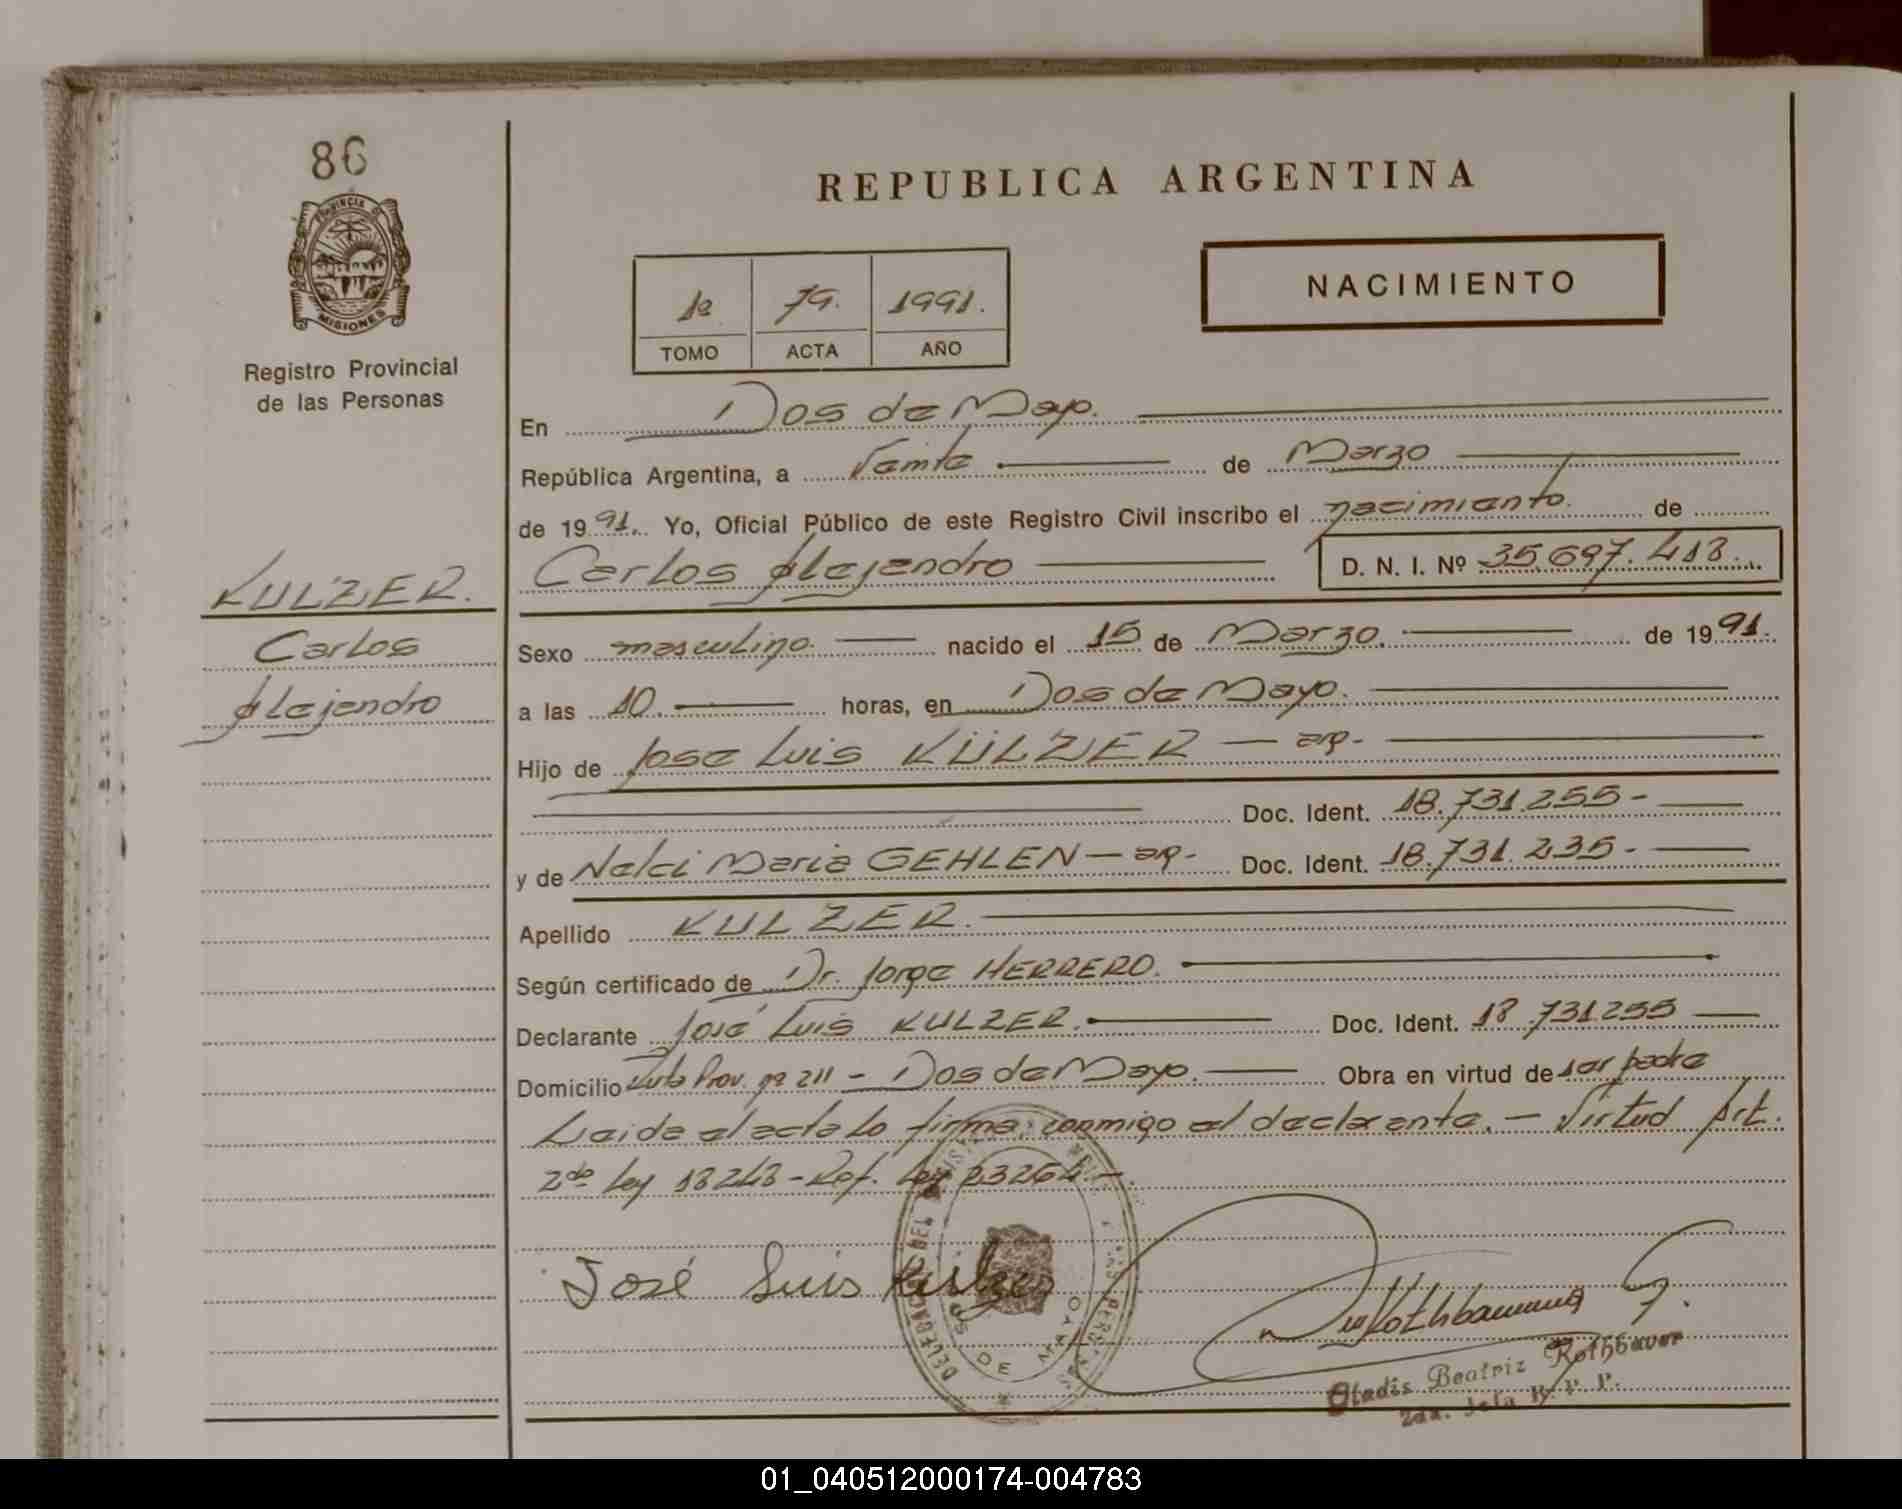 86
PROVINCIA DE
MISIONES
Registro Provincial
de las Personas
KULZER.
Carlos
Alejandro
REPUBLICA ARGENTINA
NACIMIENTO
1º 79. 1991.
TOMO ACTA AÑO
En Dos de Mayo.
República Argentina, a Veinte de Marzo
de 1991. Yo, Oficial Público de este Registro Civil inscribo el nacimiento. de
Carlos Alejandro D. N. I. Nº 35.697.418.
Sexo masculino. nacido el 15 de Marzo. de 1991.
a las 10. horas, en Dos de Mayo.
Hijo de Jose Luis KÜLZER — arg.
Doc. Ident. 18.731.255-
y de Nelci Maria GEHLEN — arg- Doc. Ident. 18.731.235-
Apellido KULZER.
Según certificado de Dr. Jorge HERRERO.
Declarante José Luis KULZER. Doc. Ident. 18.731255
Domicilio Ruta Prov. nº 211 - Dos de Mayo. Obra en virtud de ser padre
Leida el acta lo firma conmigo el declarante. — Virtud Art.
2do Ley 18248 - Ref. Ley 23264 -
José Luis Kulzer
DOS DE MAYO
Gladis Beatriz Rothbauer
2da. Jefa R. P. P.
01_040512000174-004783